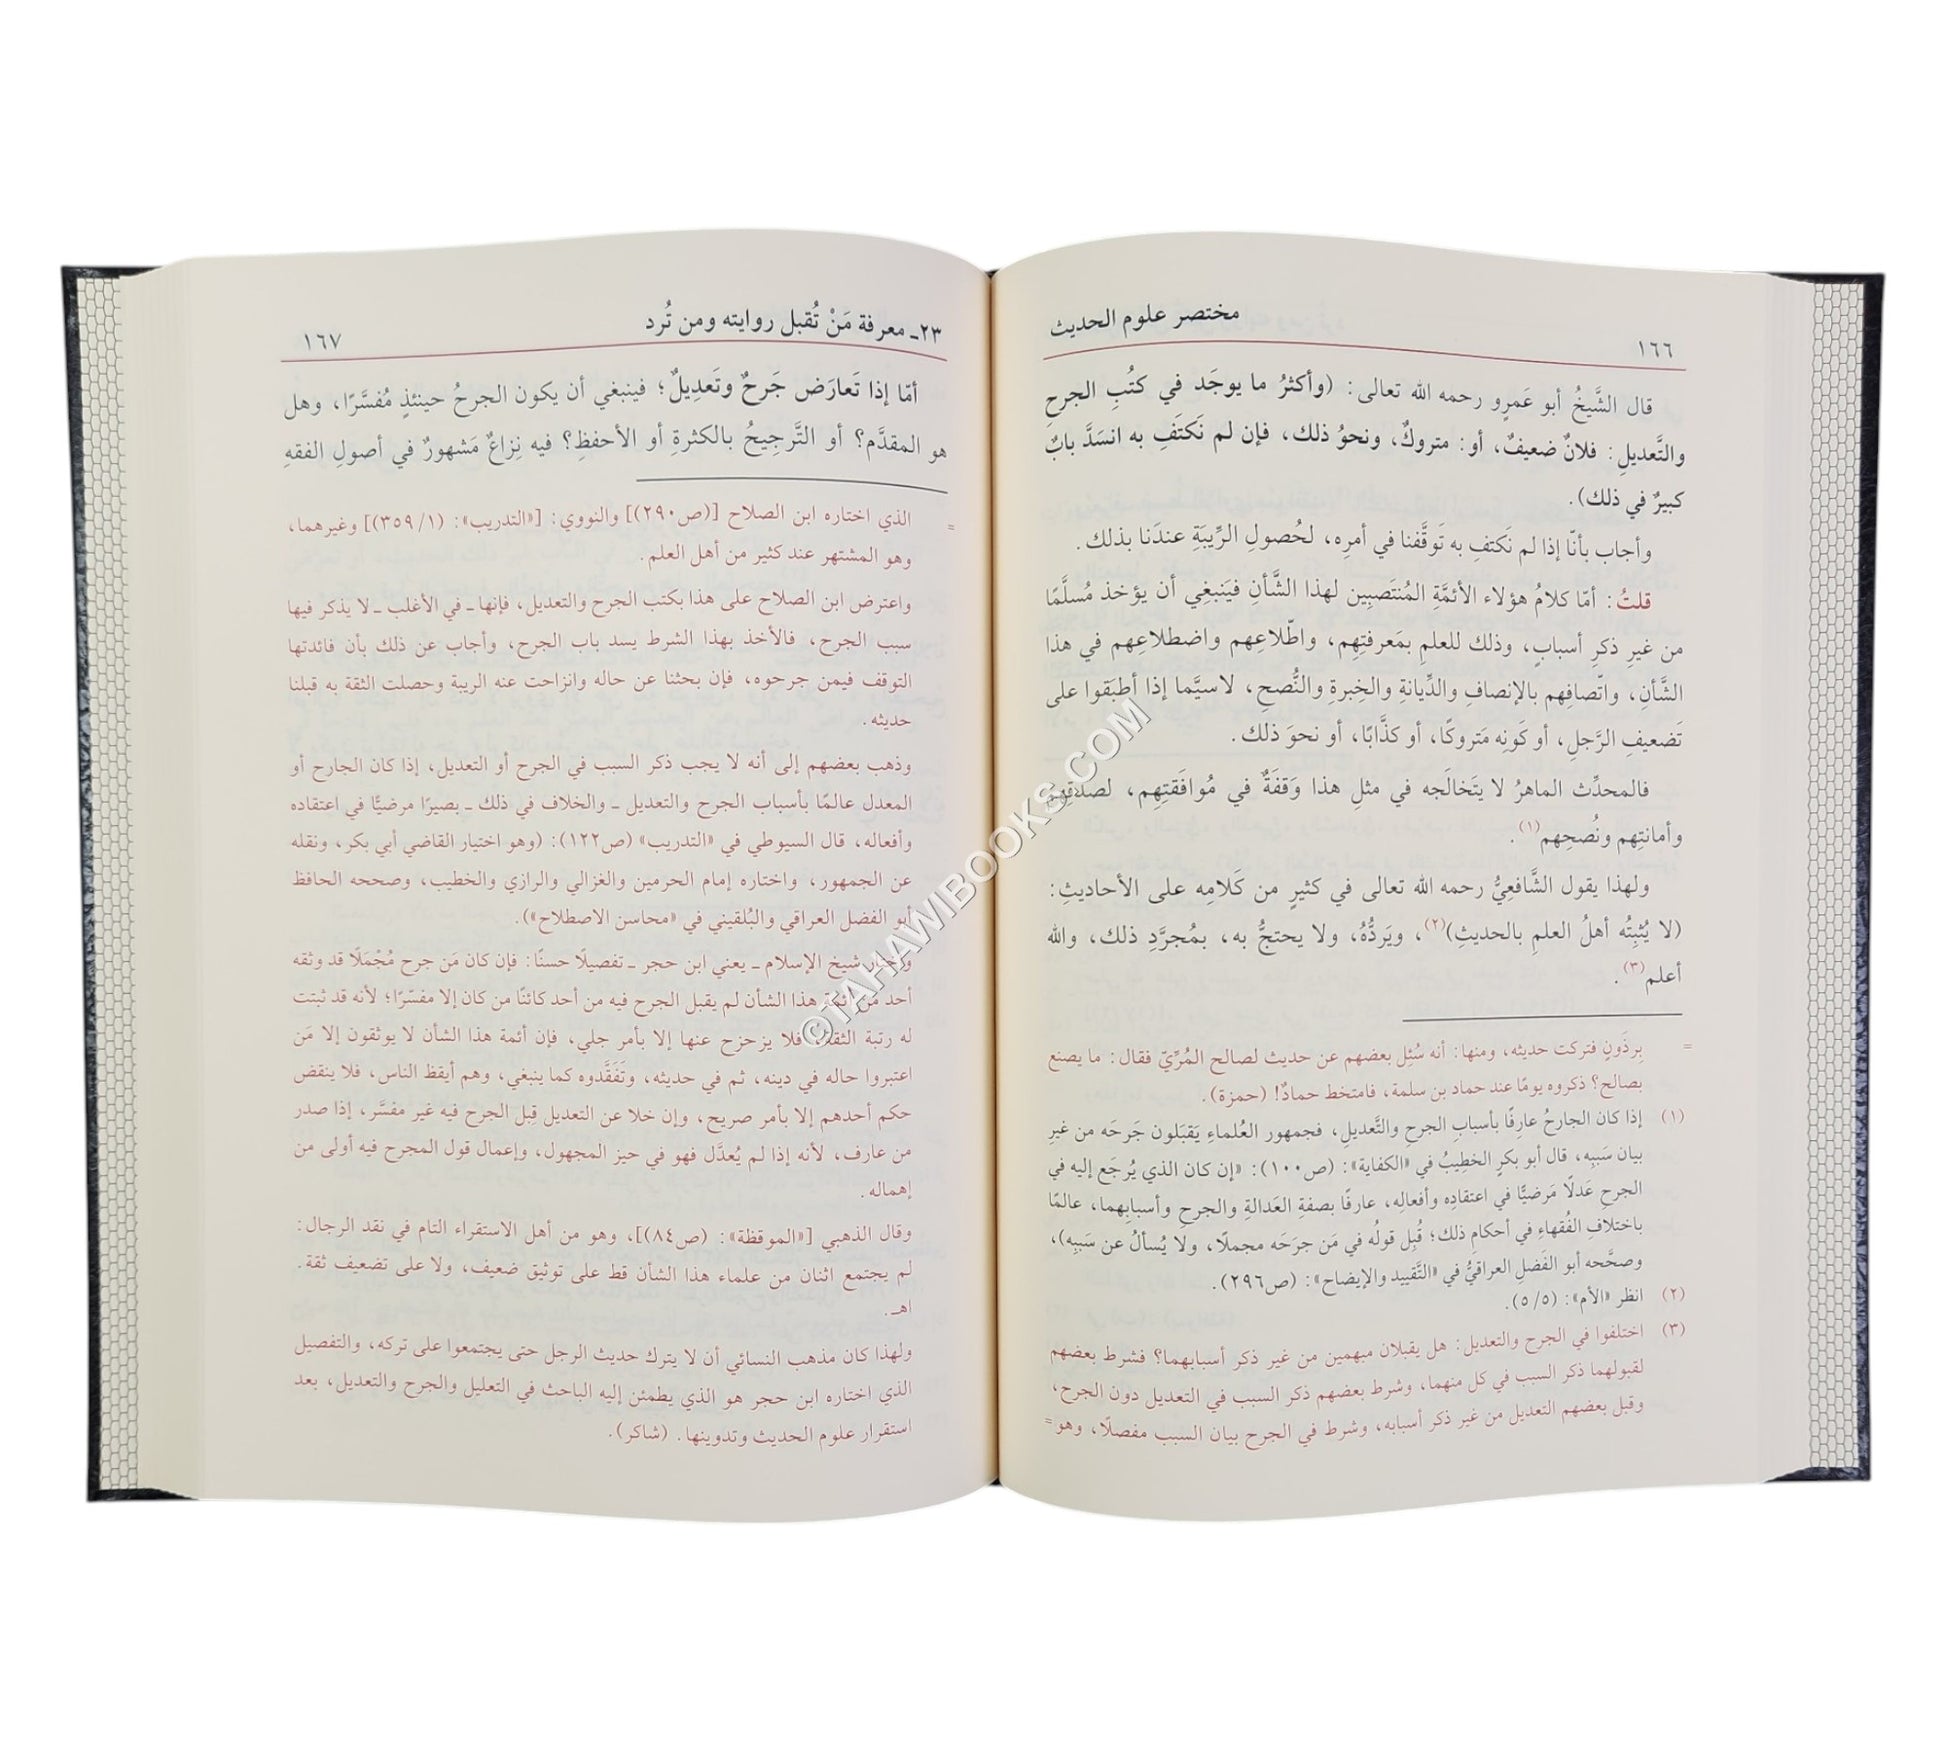 مختصر علوم الحديث
١٦٦
قال الشَّيخُ أبو عَمرٍو رحمه الله تعالى: (وأكثرُ ما يوجَد في كتُبِ الجرحِ
والتَّعديلِ: فلانٌ ضعيفٌ، أو: متروكٌ، ونحوُ ذلك، فإن لم نَكتَفِ به انسَدَّ بابٌ
كبيرٌ في ذلك).
وأجاب بأنّا إذا لم نَكتفِ به تَوقَّفنا في أمرِه، لحُصولِ الرِّيبَةِ عندَنا بذلك.
قلتُ: أمّا كلامُ هؤلاء الأئمَّةِ المُنتَصبِين لهذا الشَّأنِ فيَنبغِي أن يؤخذ مُسلَّمًا
من غيرِ ذكرِ أسبابٍ، وذلك للعلمِ بمَعرفتِهِم، واطّلاعِهم واضطلاعِهم في هذا
الشَّأنِ، واتّصافِهم بالإنصافِ والدِّيانةِ والخِبرةِ والنُّصحِ، لاسيَّما إذا أطبَقوا على
تَضعيفِ الرَّجلِ، أو كَونِه مَتروكًا، أو كذَّابًا، أو نحوَ ذلك.
فالمحدِّث الماهرُ لا يتَخالَجه في مثلِ هذا وَقفَةٌ في مُوافَقتِهِم، لصدقِهِم
وأمانتِهم ونُصحِهم(١).
ولهذا يقول الشَّافعِيُّ رحمه الله تعالى في كثيرٍ من كَلامِه على الأحاديثِ:
(لا يُثبِتُه أهلُ العلمِ بالحديثِ)(٢)، ويَردُّهُ، ولا يحتجُّ به، بمُجرَّدِ ذلك، والله
أعلم(٣).
= بِرذَونٍ فتركت حديثه، ومنها: أنه سُئِل بعضهم عن حديث لصالح المُرِّيّ فقال: ما يصنع
بصالح؟ ذكروه يومًا عند حماد بن سلمة، فامتخط حمادٌ! (حمزة).
(١) إذا كان الجارحُ عارِفًا بأسبابِ الجرحِ والتَّعديلِ، فجمهور العُلماءِ يَقبَلون جَرحَه من غيرِ
بيان سَببِه، قال أبو بكرٍ الخطِيبُ في «الكفاية»: (ص١٠٠): «إن كان الذي يُرجَع إليه في
الجرحِ عَدلًا مَرضيًّا في اعتقادِه وأفعالِه، عارفًا بصفةِ العَدالةِ والجرحِ وأسبابِهما، عالمًا
باختلافِ الفُقهاءِ في أحكامِ ذلك؛ قُبِل قولُه في مَن جرَحَه مجملًا، ولا يُسألُ عن سَببِه)،
وصحَّحه أبو الفَضلِ العراقيُّ في «التَّقييد والإيضاح»: (ص٢٩٦).
(٢) انظر «الأم»: (٥/٥).
(٣) اختلفوا في الجرح والتعديل: هل يقبلان مبهمين من غير ذكر أسبابهما؟ فشرط بعضهم
لقبولهما ذكر السبب في كل منهما، وشرط بعضهم ذكر السبب في التعديل دون الجرح،
وقبل بعضهم التعديل من غير ذكر أسبابه، وشرط في الجرح بيان السبب مفصلًا، وهو =
٢٣ـ معرفة مَنْ تُقبل روايته ومن تُرد
١٦٧
أمّا إذا تَعارَض جَرحٌ وتَعدِيلٌ؛ فينبغي أن يكون الجرحُ حينئذٍ مُفسَّرًا، وهل
هو المقدَّم؟ أو التَّرجِيحُ بالكثرةِ أو الأحفظِ؟ فيه نِزاعٌ مَشهورٌ في أصولِ الفقهِ
= الذي اختاره ابن الصلاح [(ص٢٩٠)] والنووي: [«التدريب»: (٣٥٩/١)] وغيرهما،
وهو المشتهر عند كثير من أهل العلم.
واعترض ابن الصلاح على هذا بكتب الجرح والتعديل، فإنها ـ في الأغلب ـ لا يذكر فيها
سبب الجرح، فالأخذ بهذا الشرط يسد باب الجرح، وأجاب عن ذلك بأن فائدتها
التوقف فيمن جرحوه، فإن بحثنا عن حاله وانزاحت عنه الريبة وحصلت الثقة به قبلنا
حديثه.
وذهب بعضهم إلى أنه لا يجب ذكر السبب في الجرح أو التعديل، إذا كان الجارح أو
المعدل عالمًا بأسباب الجرح والتعديل ـ والخلاف في ذلك ـ بصيرًا مرضيًّا في اعتقاده
وأفعاله، قال السيوطي في «التدريب» (ص١٢٢): (وهو اختيار القاضي أبي بكر، ونقله
عن الجمهور، واختاره إمام الحرمين والغزالي والرازي والخطيب، وصححه الحافظ
أبو الفضل العراقي والبُلقيني في «محاسن الاصطلاح»).
واختار شيخ الإسلام ـ يعني ابن حجر ـ تفصيلًا حسنًا: فإن كان مَن جرح مُجْمَلًا قد وثقه
أحد من أئمة هذا الشأن لم يقبل الجرح فيه من أحد كائنًا من كان إلا مفسّرًا؛ لأنه قد ثبتت
له رتبة الثقة، فلا يزحزح عنها إلا بأمر جلي، فإن أئمة هذا الشأن لا يوثقون إلا مَن
اعتبروا حاله في دينه، ثم في حديثه، وتَفَقَّدوه كما ينبغي، وهم أيقظ الناس، فلا ينقض
حكم أحدهم إلا بأمر صريح، وإن خلا عن التعديل قبِل الجرح فيه غير مفسَّر، إذا صدر
من عارف، لأنه إذا لم يُعدَّل فهو في حيز المجهول، وإعمال قول المجرح فيه أولى من
إهماله.
وقال الذهبي [«الموقظة»: (ص٨٤)]، وهو من أهل الاستقراء التام في نقد الرجال:
لم يجتمع اثنان من علماء هذا الشأن قط على توثيق ضعيف، ولا على تضعيف ثقة.
اهـ.
ولهذا كان مذهب النسائي أن لا يترك حديث الرجل حتى يجتمعوا على تركه، والتفصيل
الذي اختاره ابن حجر هو الذي يطمئن إليه الباحث في التعليل والجرح والتعديل، بعد
استقرار علوم الحديث وتدوينها. (شاكر).
©TAHAWIBOOKS.COM